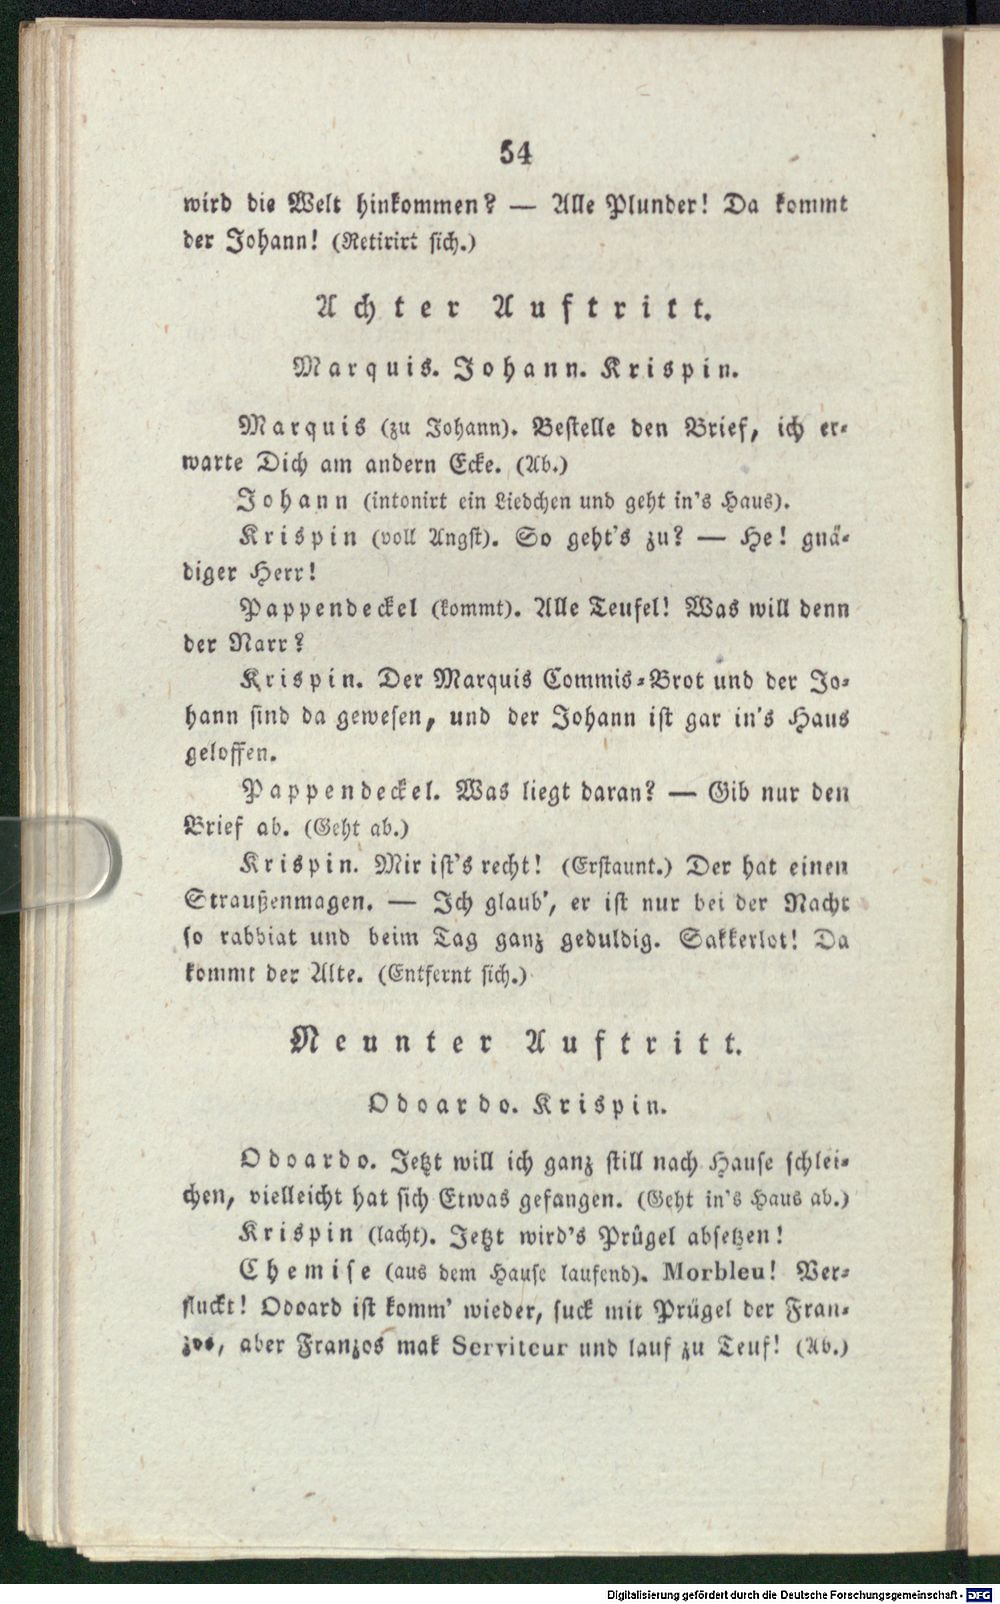 54
wird die Welt hinkommen? — Alle Plunder! Da kommt
der Johann! (Retirirt sich.)
Achter Auftritt.
Marquis. Johann. Krispin.
Marquis (zu Johann). Bestelle den Brief, ich er-
warte Dich am andern Ecke. (Ab.)
Johann (intonirt ein Liedchen und geht in's Haus).
Krispin (voll Angst). So geht's zu? — He! gnä-
diger Herr!
Pappendeckel (kommt). Alle Teufel! Was will denn
der Narr?
Krispin. Der Marquis Commis-Brot und der Jo-
hann sind da gewesen, und der Johann ist gar in's Haus
geloffen.
Pappendeckel. Was liegt daran? — Gib nur den
Brief ab. (Geht ab.)
Krispin. Mir ist's recht! (Erstaunt.) Der hat einen
Straußenmagen. — Ich glaub', er ist nur bei der Nacht
so rabbiat und beim Tag ganz geduldig. Sakkerlot! Da
kommt der Alte. (Entfernt sich.)
Neunter Auftritt.
Odoardo. Krispin.
Odoardo. Jetzt will ich ganz still nach Hause schlei-
chen, vielleicht hat sich Etwas gefangen. (Geht in's Haus ab.)
Krispin (lacht). Jetzt wird's Prügel absetzen!
Chemise (aus dem Hause laufend). Morbleu! Ver-
fluckt! Odoard ist komm' wieder, suck mit Prügel der Fran-
zos, aber Franzos mak Serviteur und lauf zu Teuf! (Ab.)
Digitalisierung gefördert durch die Deutsche Forschungsgemeinschaft - DFG